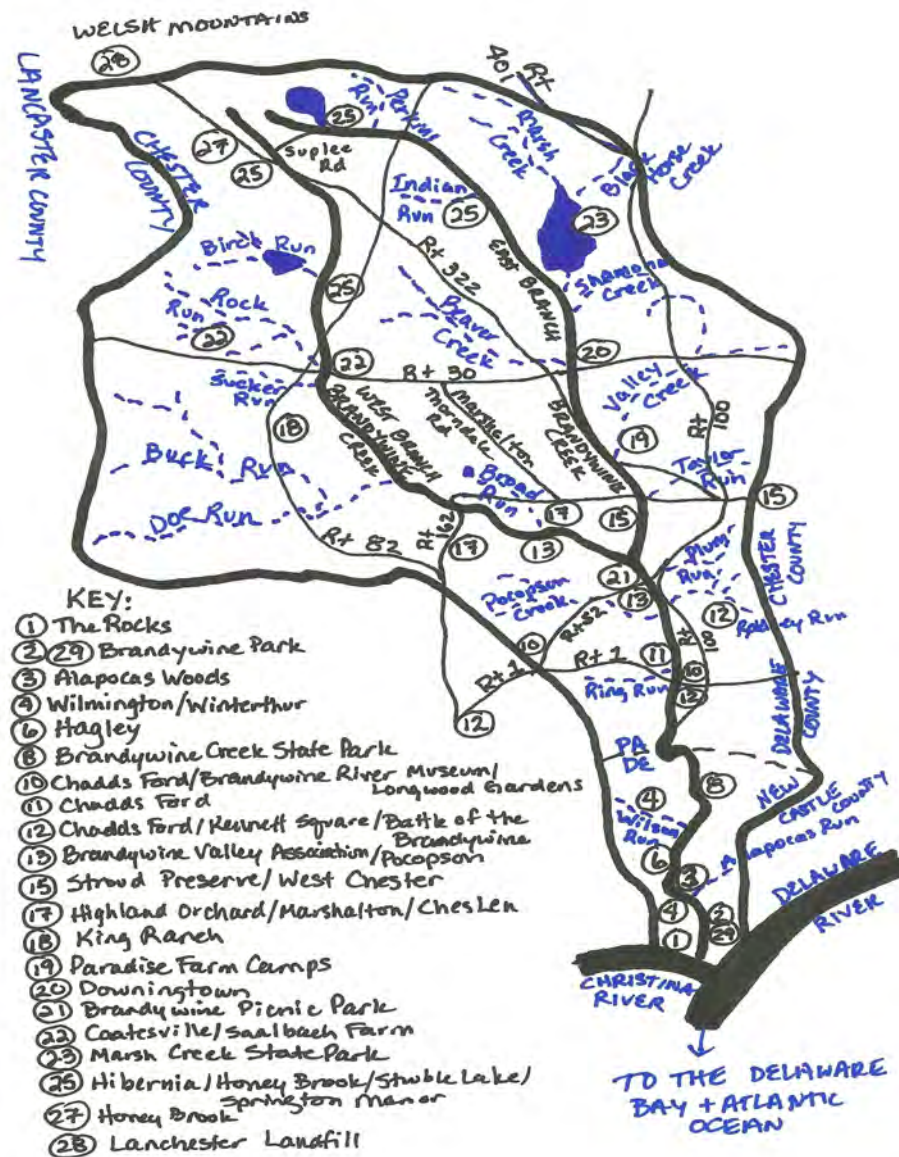 WELSH MOUNTAINS
28
LANCASTER COUNTY
CHESTER COUNTY
27
25
25
Suplee Rd
Perkins Run
Rt 401
Marsh Creek
Black Horse Creek
Indian Run
25
23
Birch Run
Rt 322
EAST BRANCH BRANDYWINE CREEK
Shamona Creek
25
Rock Run
22
Beaver Creek
22
20
Rt 30
Sucker Run
WEST BRANCH BRANDYWINE CREEK
Marshalton Thorndale Rd
Valley Creek
Rt 100
18
19
Buck Run
Broad Run
Taylor Run
Doe Run
17
15
15
Rt 82
Rt 162
17
13
21
Plum Run
CHESTER COUNTY
Pocopson Creek
13
12
Radney Run
Rt 52
10
Rt 100
Rt 1
Rt 1
11
10
Ring Run
12
12
DELAWARE COUNTY
PA
DE
8
NEW CASTLE COUNTY
4
Wilson Run
6
3
Alapocas Run
4
2
29
1
DELAWARE RIVER
CHRISTINA RIVER
TO THE DELAWARE
BAY + ATLANTIC
OCEAN
KEY:
1 The Rocks
2 29 Brandywine Park
3 Alapocas Woods
4 Wilmington/Winterthur
6 Hagley
8 Brandywine Creek State Park
10 Chadds Ford/Brandywine River Museum/
Longwood Gardens
11 Chadds Ford
12 Chadds Ford/Kennett Square/Battle of the
Brandywine
13 Brandywine Valley Association/Pocopson
15 Stroud Preserve/West Chester
17 Highland Orchard/Marshalton/ChesLen
18 King Ranch
19 Paradise Farm Camps
20 Downingtown
21 Brandywine Picnic Park
22 Coatesville/Saalbach Farm
23 Marsh Creek State Park
25 Hibernia/Honey Brook/Struble Lake/
Springton Manor
27 Honey Brook
28 Lanchester Landfill